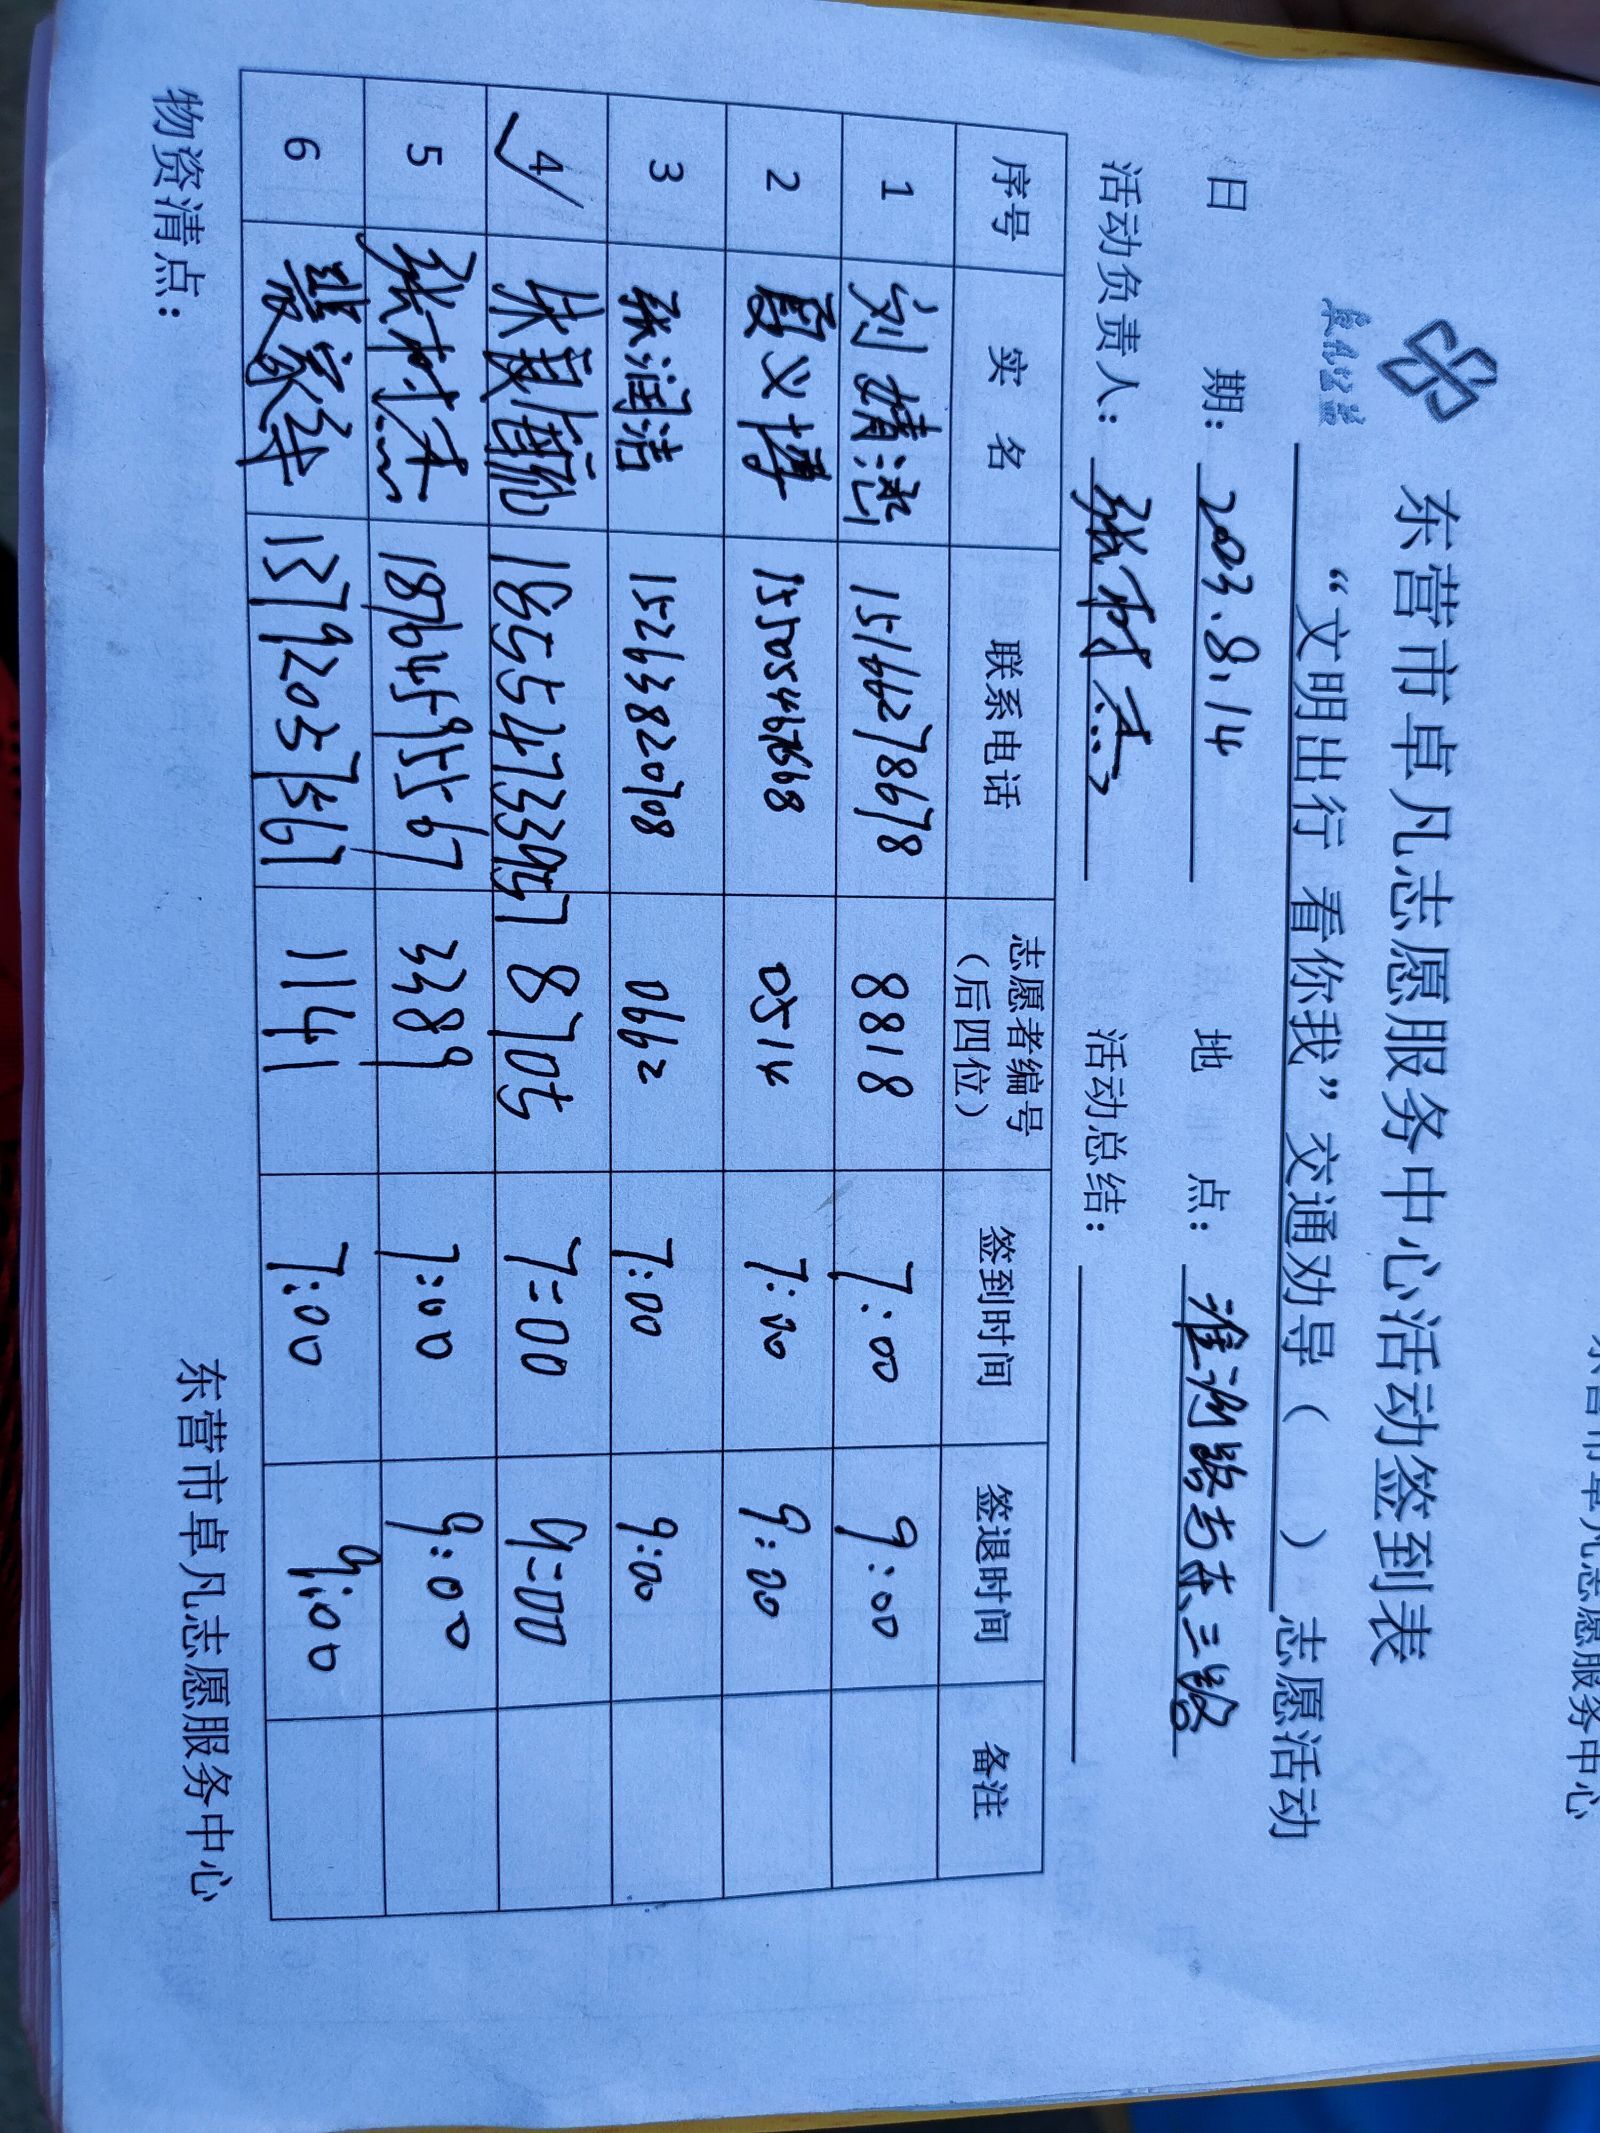 卓凡公益
东营市卓凡志愿服务中心活动签到表
“文明出行 看你我”交通劝导（ ）志愿活动
日 期：2003.8.14 地 点：淮河路与东三路
活动负责人：张树杰 活动总结：
序号 实 名 联系电话 志愿者编号（后四位） 签到时间 签退时间 备注
1 刘婧 15166278678 8818 7:00 9:00
2 夏义博 15505467668 0514 7:00 9:00
3 张润洁 15263820708 0662 7:00 9:00
4 18554733957 8705 7:00 9:00
5 张树杰 18764595567 3389 7:00 9:00
6 裴家 13792037561 1141 7:00 9:00
物资清点：
东营市卓凡志愿服务中心
东营市卓凡志愿服务中心